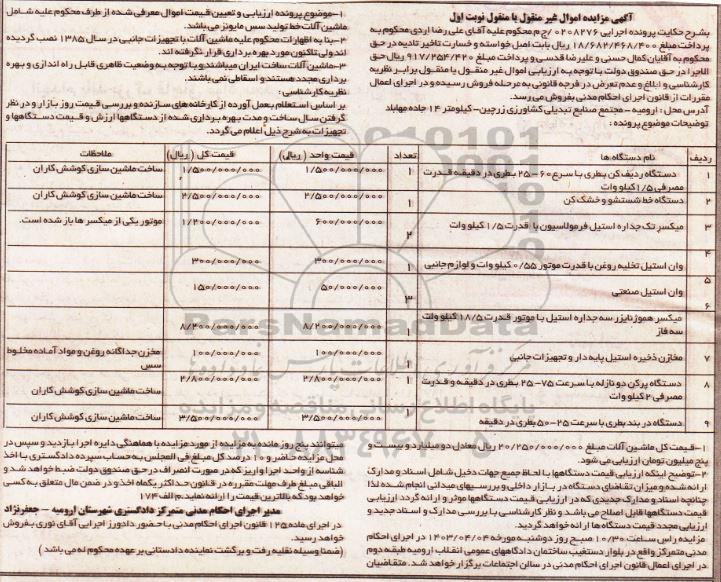 آگهی مزایده اموال غیر منقول یا منقول نوبت اول
بشرح حکایت پرونده اجرایی ۰۲۰۸۲۷۶/ج م محکوم علیه آقای علی رضا اردی محکوم به
پرداخت مبلغ ۱۸/۶۸۲/۴۶۸/۴۰۰ ریال بابت اصل خواسته و خسارت تاخیر تادیه در حق
محکوم به آقایان کمال حسنی و علیرضا قدسی و پرداخت مبلغ ۹۱۷/۲۵۴/۴۲۰ ریال حق
الاجرا در حق صندوق دولت با توجه به ارزیابی اموال غیر منقول یا منقول برابر نظریه
کارشناسی و ابلاغ و عدم تعرض در فرجه قانونی به مرحله فروش رسیده و در اجرای اعمال
مقررات از قانون اجرای احکام مدنی بفروش می رسد.
آدرس محل: ارومیه - مجتمع صنایع تبدیلی کشاورزی زرچین- کیلومتر ۱۴ جاده مهاباد
توضیحات موضوع پرونده:
۱-موضوع پرونده ارزیابی و تعیین قیمت اموال معرفی شده از طرف محکوم علیه شامل
ماشین آلات خط تولید سس مایونز می باشد.
۲-بنا به اظهارات محکوم علیه ماشین آلات با تجهیزات جانبی در سال ۱۳۸۵ نصب گردیده
اند ولی تاکنون مورد بهره برداری قرار نگرفته اند.
۳-ماشین آلات ساخت ایران میباشند و با توجه به وضعیت ظاهری قابل راه اندازی و بهره
برداری مجدد هستند و اسقاطی نمی باشند.
نظریه کارشناسی:
بر اساس استعلام بعمل آورده از کارخانه های سازنده و بررسی قیمت روز بازار و در نظر
گرفتن سال ساخت و مدت بهره برداری شده از دستگاهها ارزش و قیمت دستگاهها و
تجهیزات به شرح ذیل اعلام می گردد.
ردیف نام دستگاه ها تعداد قیمت واحد (ریال) قیمت کل (ریال) ملاحظات
۱ دستگاه ردیف کن بطری با سرعت ۶۰-۲۵ بطری در دقیقه قدرت مصرفی ۱/۵ کیلو وات ۱ ۱/۵۰۰/۰۰۰/۰۰۰ ۱/۵۰۰/۰۰۰/۰۰۰ ساخت ماشین سازی کوشش کاران
۲ دستگاه خط شستشو و خشک کن ۱ ۲/۵۰۰/۰۰۰/۰۰۰ ۲/۵۰۰/۰۰۰/۰۰۰ ساخت ماشین سازی کوشش کاران
۳ میکسر تک جداره استیل فرمولاسیون با قدرت ۱/۵ کیلو وات ۲ ۶۰۰/۰۰۰/۰۰۰ ۱/۲۰۰/۰۰۰/۰۰۰ موتور یکی از میکسر ها باز شده است.
۴ وان استیل تخلیه روغن با قدرت موتور ۰/۵۵ کیلو وات و لوازم جانبی ۱ ۳۰۰/۰۰۰/۰۰۰ ۳۰۰/۰۰۰/۰۰۰
۵ وان استیل صنعتی ۳ ۵۰/۰۰۰/۰۰۰ ۱۵۰/۰۰۰/۰۰۰
۶ میکسر هموژنایزر سه جداره استیل با موتور قدرت ۱۸/۵ کیلو وات سه فاز ۱ ۸/۲۰۰/۰۰۰/۰۰۰ ۸/۲۰۰/۰۰۰/۰۰۰
۷ مخازن ذخیره استیل پایه دار و تجهیزات جانبی ۱ ۱۰۰/۰۰۰/۰۰۰ ۱۰۰/۰۰۰/۰۰۰ مخزن جداگانه روغن و مواد آماده مخلوط سس
۸ دستگاه پرکن دو نازله با سرعت ۷۵-۲۵ بطری در دقیقه و قدرت مصرفی ۲ کیلو وات ۱ ۲/۸۰۰/۰۰۰/۰۰۰ ۲/۸۰۰/۰۰۰/۰۰۰ ساخت ماشین سازی کوشش کاران
۹ دستگاه در بند بطری با سرعت ۲۵-۵۰ بطری در دقیقه ۱ ۳/۵۰۰/۰۰۰/۰۰۰ ۳/۵۰۰/۰۰۰/۰۰۰ ساخت ماشین سازی کوشش کاران
۱-قیمت کل ماشین آلات مبلغ ۲۰/۲۵۰/۰۰۰/۰۰۰ ریال معادل دو میلیارد و بیست و
پنج میلیون تومان ارزیابی می شود.
۲-توضیح اینکه ارزیابی قیمت دستگاهها با لحاظ جمیع جهات دخیل شامل اسناد و مدارک
ارائه شده و میزان تقاضای دستگاه در بازار داخلی و بررسیهای میدانی انجام شده لذا
چنانچه اسناد و مدارک جدیدی که در ارزیابی قیمت دستگاهها موثر و ارائه گردد ارزیابی
قیمت دستگاهها قابل اصلاح می باشد و نظر کارشناسی با بررسی مدارک و اسناد جدید و
ارزیابی مجدد قیمت دستگاه ها ارائه خواهد گردید.
مزایده راس ساعت ۱۰/۳۰ صبح روز دوشنبه مورخه ۱۴۰۳/۰۴/۰۴ در اجرای احکام
مدنی متمرکز واقع در بلوار دستغیب ساختمان دادگاههای عمومی انقلاب ارومیه طبقه دوم
در اجرای اعمال قانون اجرای احکام مدنی در سالن اجتماعات برگزار خواهد شد. متقاضیان
میتوانند پنج روز مانده به مزایده از مورد مزایده با هماهنگی دایره اجرا بازدید و سپس در
محل مزایده حاضر و ۱۰ در صد کل مبلغ فی المجلس به حساب سپرده دادگستری با اخذ
شناسه از واحد اجرا واریز که در صورت انصراف در حق صندوق دولت ضبط خواهد شد و
الباقی مبلغ ظرف مهلت مقرره در قانون حداکثر یکماه اخذ و در ضمن مال متعلق به کسی
خواهد بود که بالاترین قیمت را ارائه نماید.م الف ۱۷۴
مدیر اجرای احکام مدنی متمرکز دادگستری شهرستان ارومیه - جعفرنژاد
در اجرای ماده ۱۲۵ قانون اجرای احکام مدنی با حضور دادورز اجرایی آقای نوری بفروش
خواهد رسید.
(ضمنا وسیله نقلیه رفت و برگشت نماینده دادستانی بر عهده محکوم له می باشد)
ParsNamadData